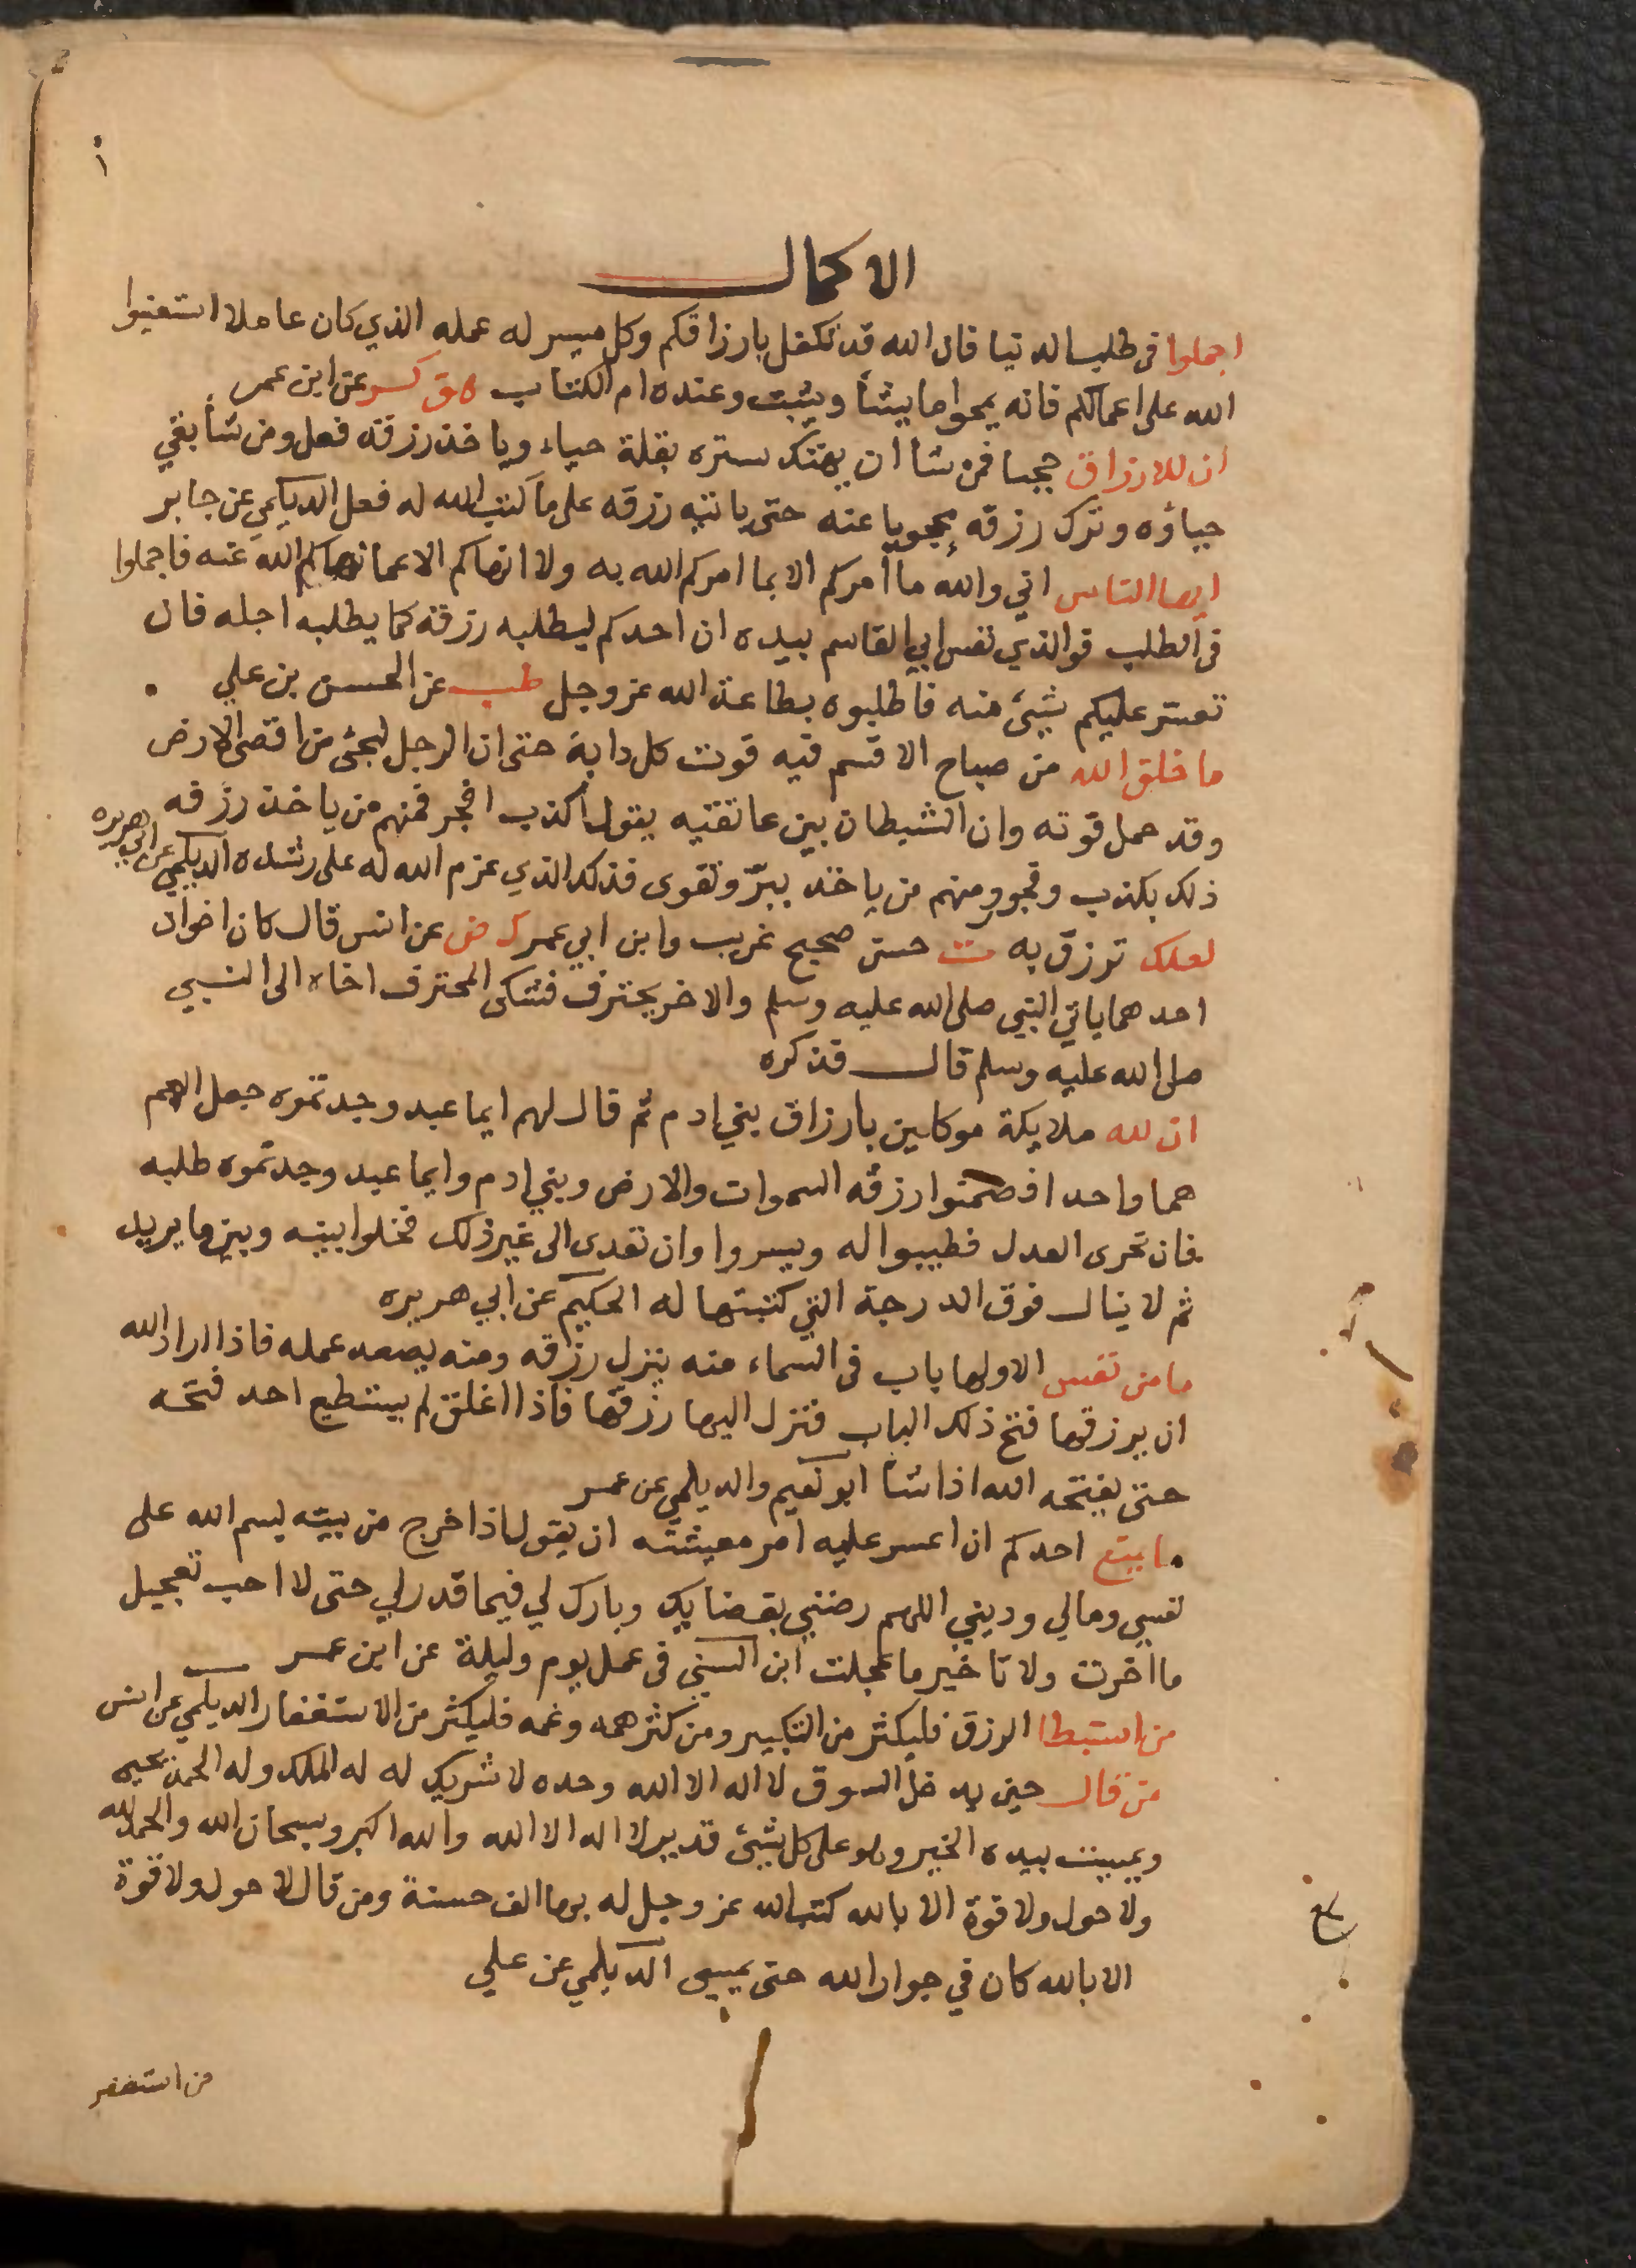 ١
الاكمال
اجملوا فى طلب الدنيا فان الله قد تكفل بارزاقكم وكل ميسر له عمله الذي كان عاملا استعينوا
الله على اعمالكم فانه يمحوا ما يشأ ويثبت وعنده ام الكتاب هق كر عن ابن عمر
ان للارزاق حجبا فمن شا ان يهتك ستره بقلة حياء وياخذ رزقه فعل ومن شأ بقي
حياؤه وترك رزقه محجوبا عنه حتى ياتيه رزقه على ما كتب الله له فعل الديلمي عن جابر
ايها الناس اني والله ما امركم الا بما امركم الله به ولا انهاكم الا عما نهاكم الله عنه فاجملوا
فى الطلب فوالذي نفس ابي القاسم بيده ان احدكم ليطلبه رزقه كما يطلبه اجله فان
تعسر عليكم شيئ منه فاطلبوه بطاعة الله عز وجل طب عن الحسن بن علي
ما خلق الله من صباح الا قسم فيه قوت كل دابة حتى ان الرجل ليجئ من اقصى الارض
وقد حمل قوته وان الشيطان بين عاتقيه يقول اكذب افجر فمنهم من ياخذ رزقه
ذلك بكذب وفجور ومنهم من ياخذ ببرّ وتقوى فذلك الذي عزم الله له على رشده الديلمي عن ابي هريره
لعلك ترزق به ت حسن صحيح غريب وابن ابي عمر ك ض عن انس قال كان اخوان
احدهما ياتي النبي صلى الله عليه وسلم والاخر يحترف فشكى المحترف اخاه الى النبي
صلى الله عليه وسلم قال فذكره
ان لله ملايكة موكلين بارزاق بني ادم ثم قال لهم ايما عبد وجدتموه جعل الهم
هما واحدا فضمنوا رزقه السموات والارض وبني ادم وايما عبد وجدتموه طلبه
فان تحرى العدل فطيبوا له ويسروا وان تعدى الى غير ذلك فخلوا بينه وبين ما يريد
ثم لا ينال فوق الدرجة التي كتبتها له الحكيم عن ابي هريره
ما من نفس الا ولها باب فى السماء منه ينزل رزقه ومنه يصعد عمله فاذا اراد الله
ان يرزقها فتح ذلك الباب فنزل اليها رزقها فاذا اغلق لم يستطيع احد فتحه
حتى يفتحه الله اذا شأ ابو نعيم والديلمي عن عمر
ما يمنع احدكم ان اعسر عليه امر معيشته ان يقول اذا خرج من بيته بسم الله على
نفسي ومالي وديني اللهم رضني بقضايك وبارك لي فيما قدر لي حتى لا احب تعجيل
ما اخرت ولا تاخير ما عجلت ابن السني فى عمل يوم وليلة عن ابن عمر
من استبطا الرزق فليكثر من التكبير ومن كثر همه وغمه فليكثر من الاستغفار الديلمي عن انس
من قال حين يدخل السوق لا اله الا الله وحده لا شريك له له الملك وله الحمد يحيى
ويميت بيده الخير وهو على كل شيئ قدير لا اله الا الله والله اكبر وسبحان الله والحمد لله
ولا حول ولا قوة الا بالله كتب الله عز وجل له بها الف حسنة ومن قال لا حول ولا قوة
الا بالله كان في جوار الله حتى يمسى الديلمي عن علي
من استغفر